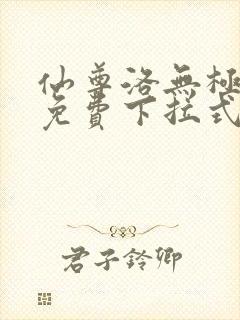 仙尊洛無極
免費下拉式
君子鈴卿